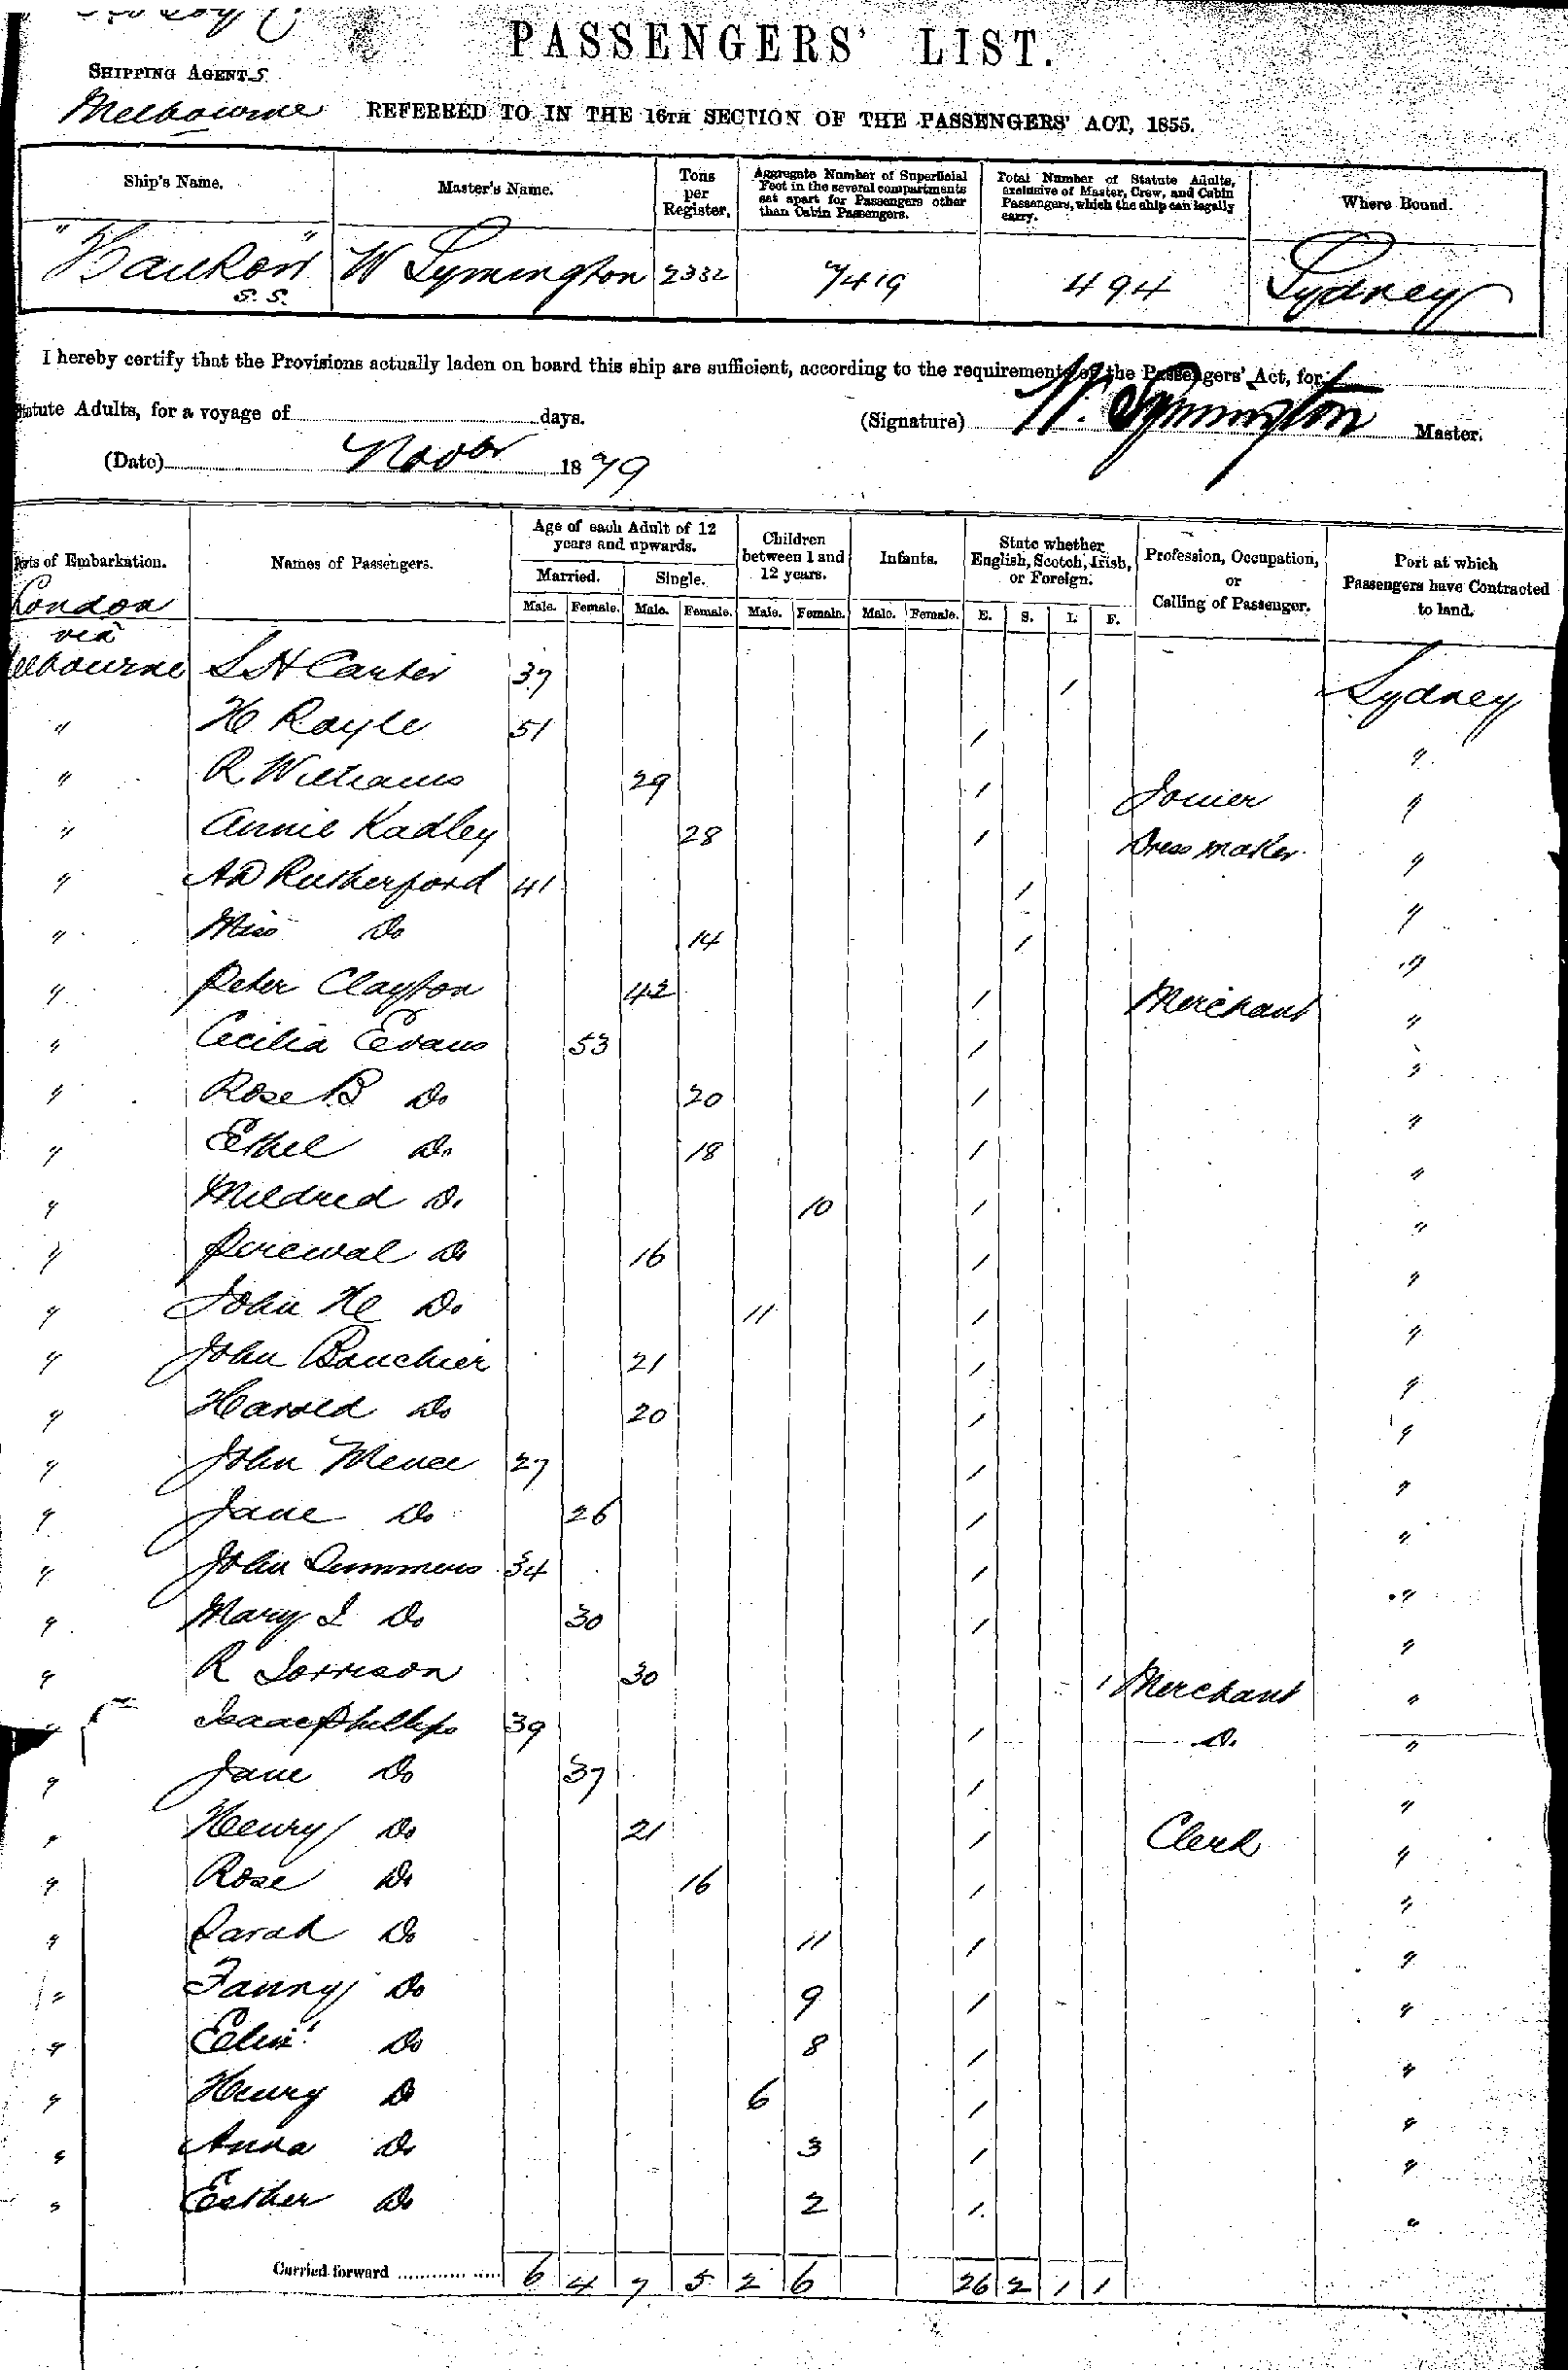 PASSENGERS' LIST.
SHIPPING AGENTS
Melbourne REFERRED TO IN THE 16TH SECTION OF THE PASSENGERS' ACT, 1855.
Ship's Name. Master's Name. Tons per Register. Aggregate Number of Superficial Feet in the several compartments set apart for Passengers other than Cabin Passengers. Total Number of Statute Adults, exclusive of Master, Crew, and Cabin Passengers, which the ship can legally carry. Where Bound.
"Hankow" S.S. W Symington 2332 7419 494 Sydney
I hereby certify that the Provisions actually laden on board this ship are sufficient, according to the requirements of the Passengers' Act, for
Statute Adults, for a voyage of days. (Signature) W. Symington Master.
(Date) Novbr 1879
Ports of Embarkation. Names of Passengers. Age of each Adult of 12 years and upwards. Children between 1 and 12 years. Infants. State whether English, Scotch, Irish, or Foreign. Profession, Occupation, or Calling of Passenger. Port at which Passengers have Contracted to land.
Married. Single.
Male. Female. Male. Female. Male. Female. Male. Female. E. S. I. F.
London
via
Melbourne S H Carter 37 / Sydney
" H Royle 51 / "
" R Williams 29 / Joiner "
" Annie Kadley 28 / Dress maker "
" A D Rutherford 41 / "
" Miss Do 14 / "
" Peter Clayton 42 / Merchant "
" Cecilia Evans 53 / "
" Rose B Do 20 / "
" Ethel Do 18 / "
" Mildred Do 10 / "
" Percival Do 16 / "
" John H Do 11 / "
" John Bouchier 21 / "
" Harold Do 20 / "
" John Mence 27 / "
" Jane Do 26 / "
" John Summers 34 / "
" Mary I Do 30 / "
" R Sorrison 30 / Merchant "
" Isaac Phillips 39 / Do "
" Jane Do 37 / "
" Henry Do 21 / Clerk "
" Rose Do 16 / "
" Sarah Do 11 / "
" Fanny Do 9 / "
" Eliz: Do 8 / "
" Henry Do 6 / "
" Anna Do 3 / "
" Esther Do 2 / "
Carried forward 6 4 7 5 2 6 26 2 1 1